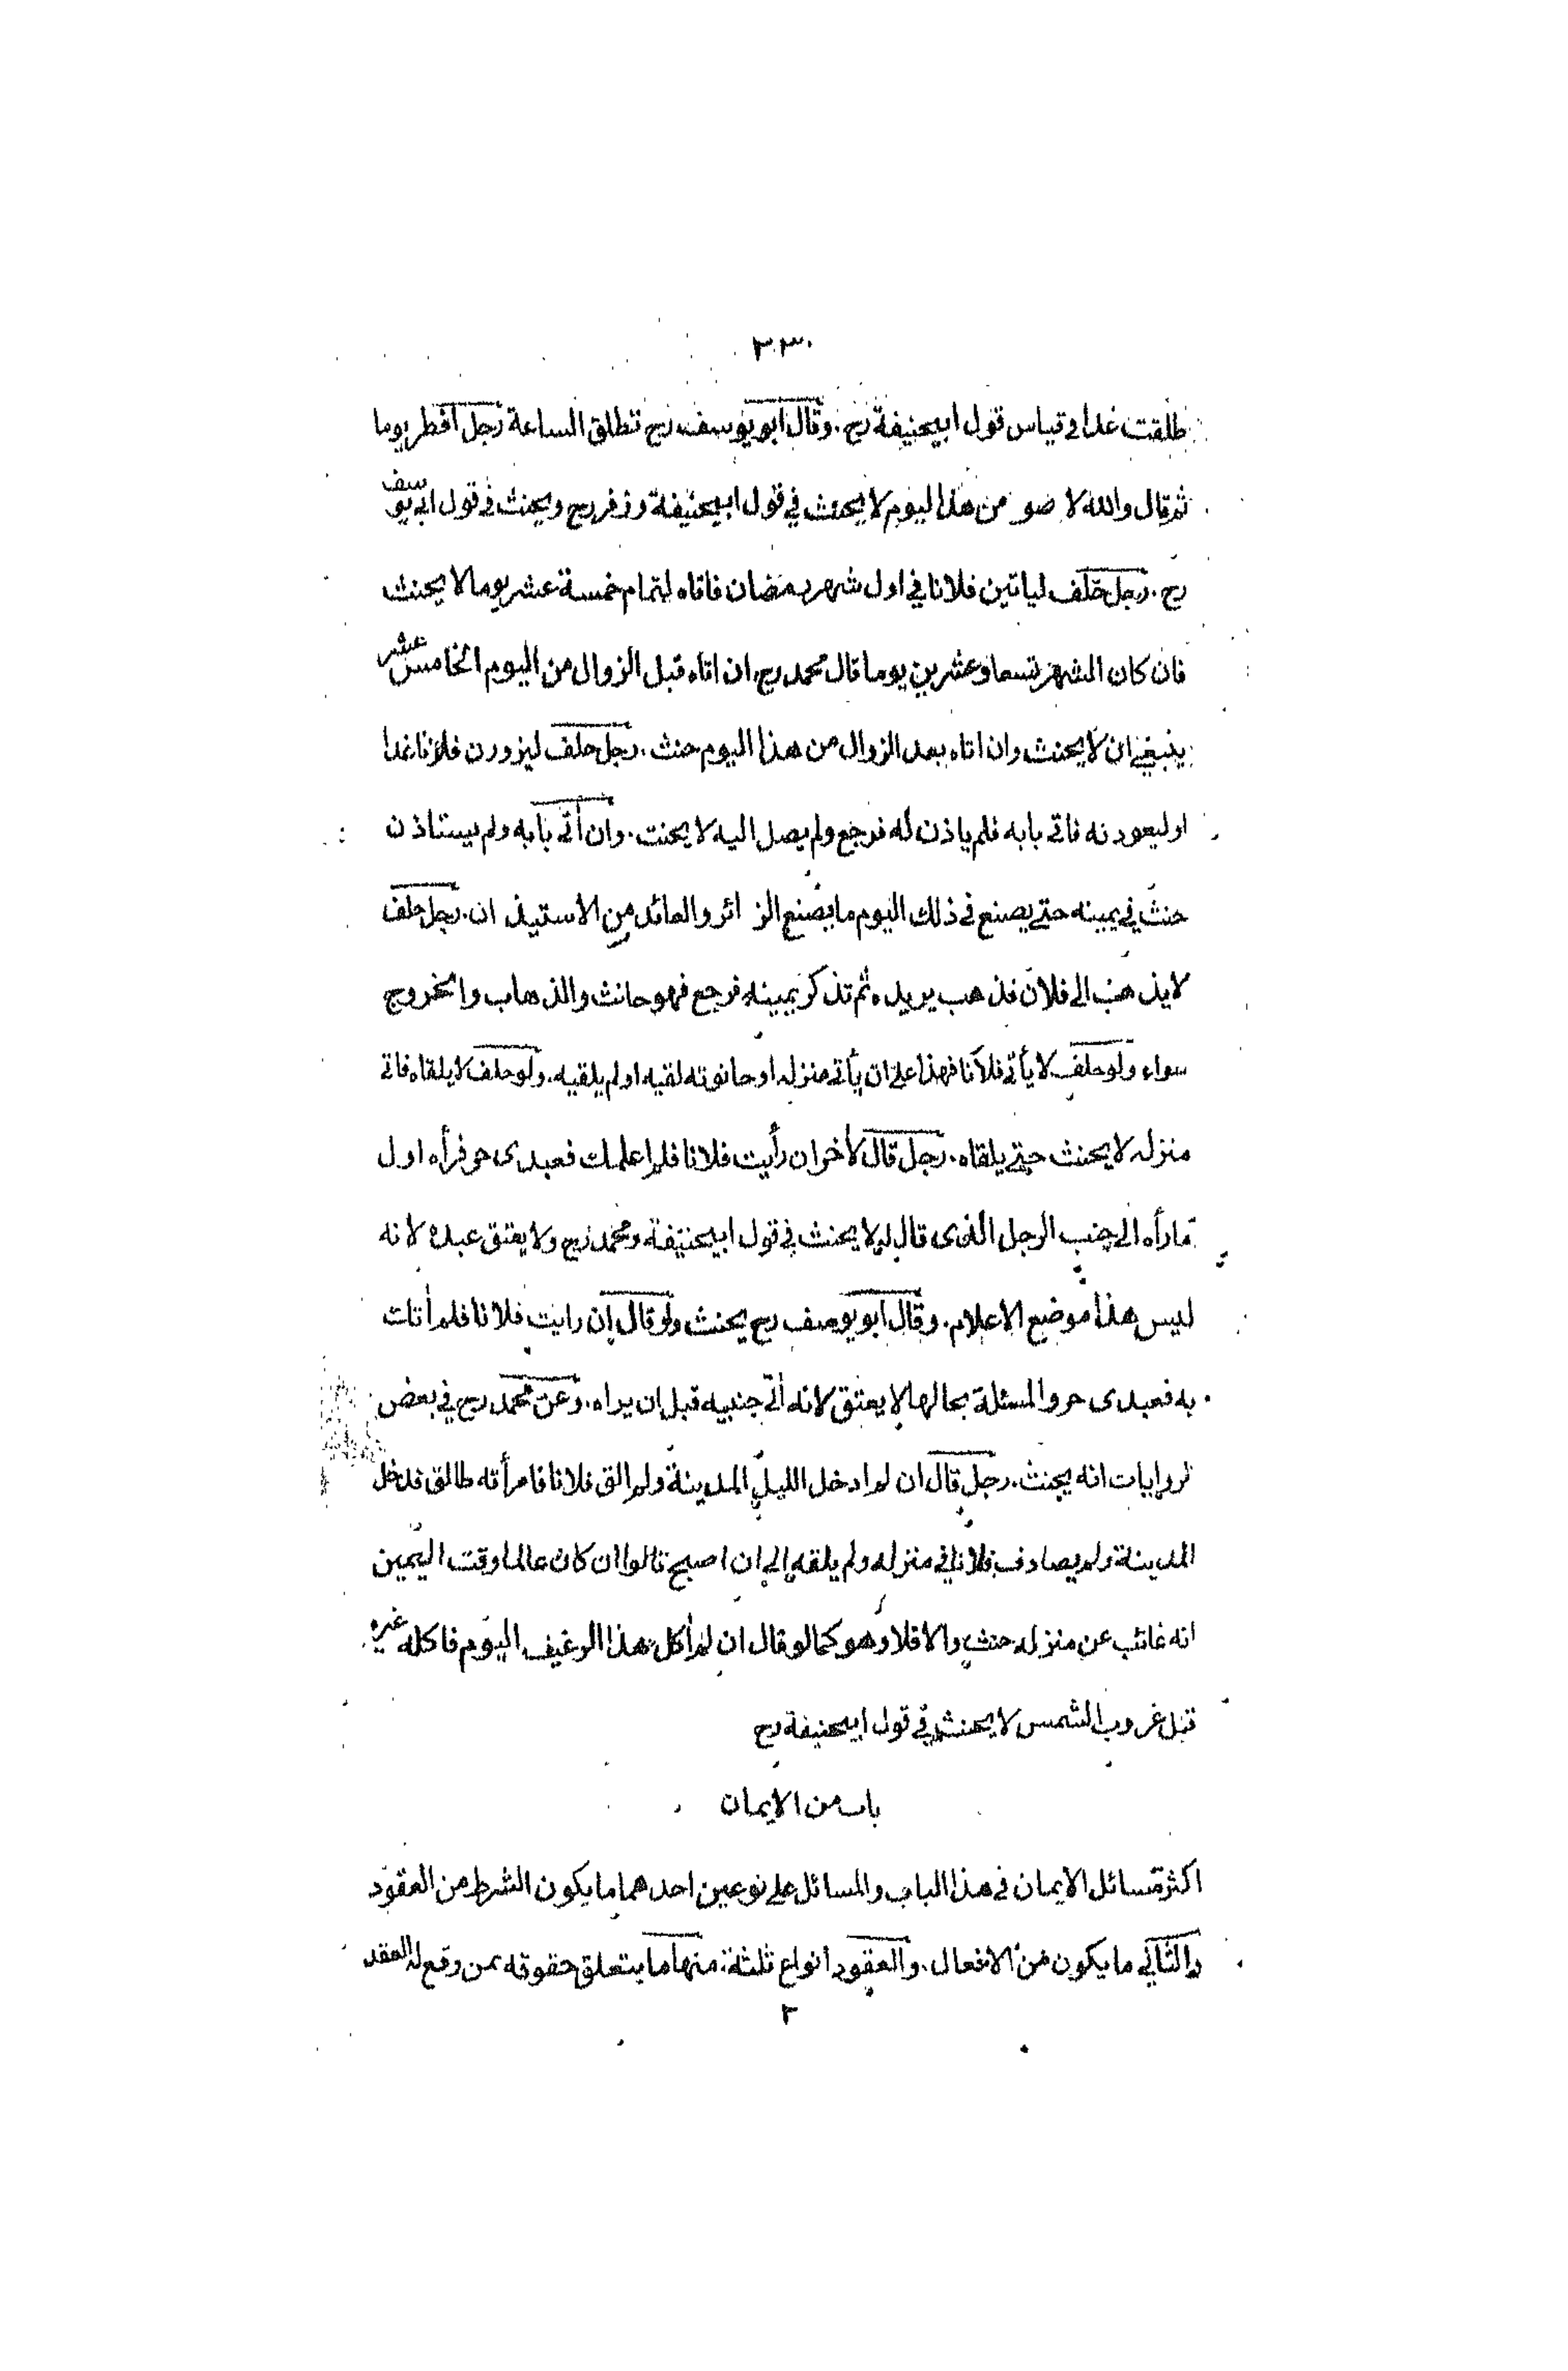 ٣٣٠
طلقت غدا في قياس قول ابيحنيفة رح. وقال ابو يوسف رح تطلق الساعة رجل افطر يوما
ثم قال والله لا صو من هذا اليوم لا يحنث في قول ابيحنيفة وزفر رح ويحنث في قول ابي يوسف
رح. رجل حلف لياتين فلانا في اول شهر رمضان فاتاه لتمام خمسة عشر يوما لا يحنث
فان كان الشهر تسعا وعشرين يوما قال محمد رح ان اتاه قبل الزوال من اليوم الخامس عشر
ينبغي ان لا يحنث وان اتاه بعد الزوال من هذا اليوم حنث. رجل حلف ليزورن فلانا غدا
او ليعودنه فاتى بابه فلم ياذن له فرجع ولم يصل اليه لا يحنث. وان أتى بابه ولم يستاذن
حنث في يمينه حتى يصنع في ذلك اليوم ما يصنع الزائر والعائد من الاستيذان. رجل حلف
لا يذهب الى فلان فذهب يريده ثم تذكر يمينه فرجع فهو حانث والذهاب والخروج
سواء ولو حلف لا يأتى فلانا فهذا على ان يأتى منزله او حانوته لقيه او لم يلقيه. ولو حلف لا يلقاه فاتى
منزله لا يحنث حتى يلقاه. رجل قال لأخر ان رأيت فلانا فلم اعلمك فعبدى حر فرأه اول
مارأه الى جنب الرجل الذى قال له لا يحنث في قول ابيحنيفة ومحمد رح ولا يعتق عبده لانه
ليس هذا موضع الاعلام. وقال ابو يوسف رح يحنث ولو قال إن رايت فلانا فلم أتك
به فعبدى حر والمسئلة بحالها لا يعتق لانه أتى جنبيه قبل ان يراه. وعن محمد رح في بعض
لروايات انه يحنث. رجل قال ان لم ادخل الليل المدينة ولم الق فلانا فامرأته طالق فدخل
المدينة ولم يصادف فلانا في منزله ولم يلقه الى ان اصبح قالوا ان كان عالما وقت اليمين
انه غائب عن منزله حنث والا فلا وهو كما لو قال ان لم أكل هذا الرغيف اليوم فاكله غيره
قبل غروب الشمس لا يحنث في قول ابيحنيفة رح
باب من الايمان
اكثر مسائل الايمان في هذا الباب والمسائل على نوعين احدهما ما يكون الشرط من العقود
والثاني ما يكون من الافعال. والعقود انواع ثلثة: منها ما يتعلق حقوقه بمن وقع له العقد
٢